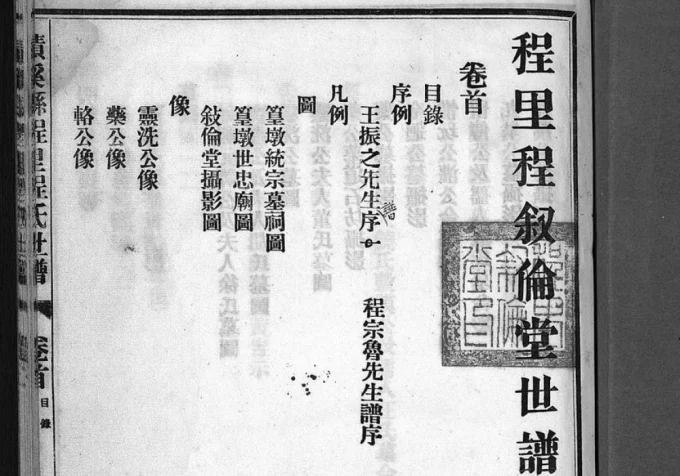 程里程叙倫堂世譜
卷首
目錄
序例
王振之先生譜序一 程宗魯先生譜序
凡例
圖
篁墩統宗墓祠圖
篁墩世忠廟圖
敍倫堂攝影圖
像
靈洗公像
藥公像
輅公像
績溪縣程里程氏世譜 卷首 目錄